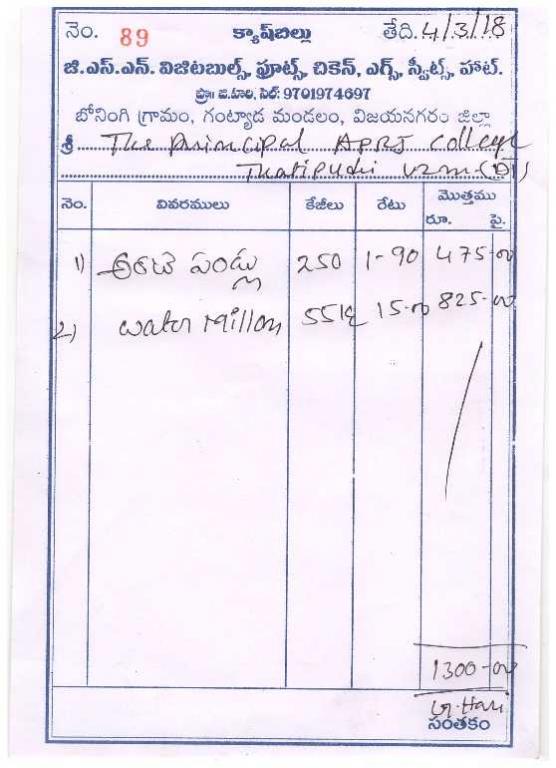 నెం. 89 క్యాష్‌బిల్లు తేది. 4/3/18
జి.ఎస్.ఎన్. విజిటబుల్స్, ఫ్రూట్స్, చికెన్, ఎగ్స్, స్వీట్స్, హాట్.
ప్రొ॥ జి.హరి, సెల్: 9701974697
బోనంగి గ్రామం, గంట్యాడ మండలం, విజయనగరం జిల్లా
శ్రీ The Principal APRJ College
Thatipudi VZM (DT)
నెం. వివరములు కేజీలు రేటు మొత్తము
రూ. పై.
1) అరటి పండ్లు 250 1-90 475-00
2) water Millon 55kg 15-00 825-00
1300-00
G. Hari
సంతకం